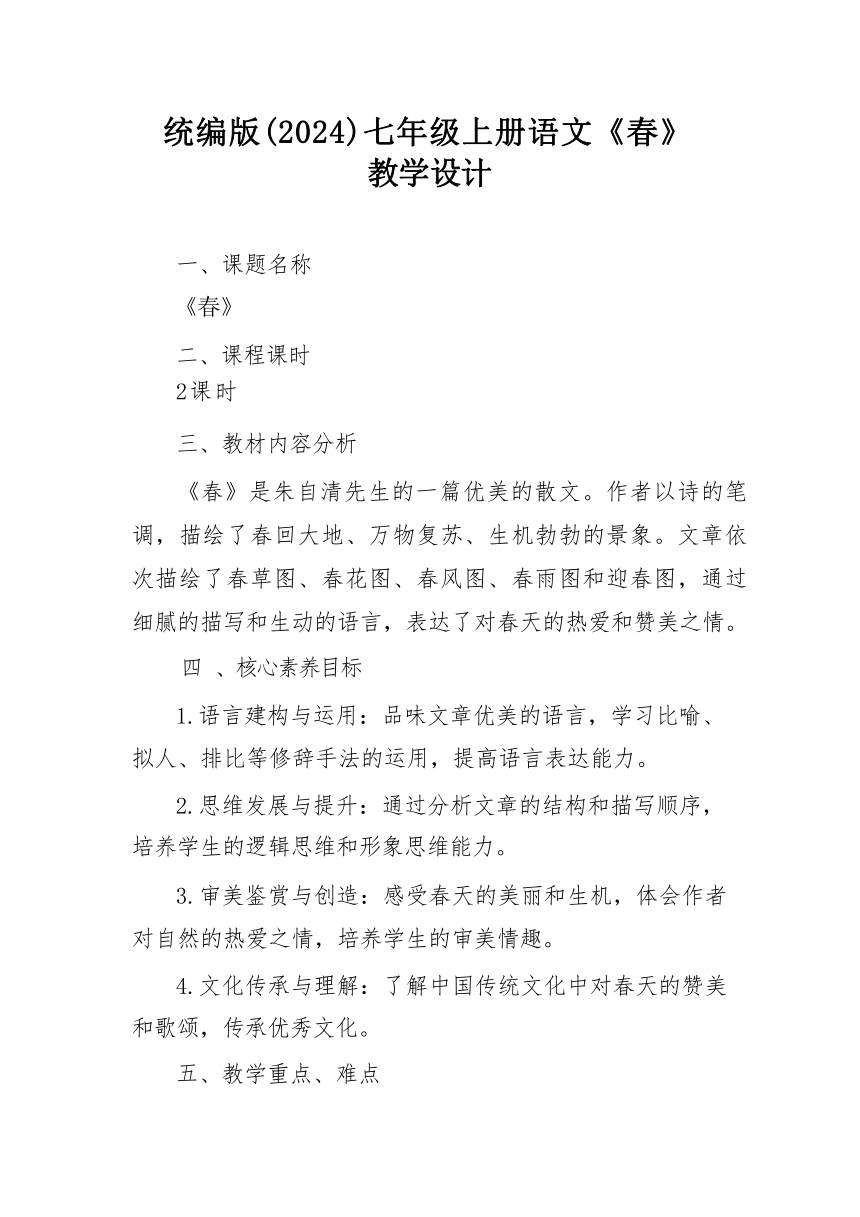 统编版(2024)七年级上册语文《春》
教学设计
一、课题名称
《春》
二、课程课时
2课时
三、教材内容分析
《春》是朱自清先生的一篇优美的散文。作者以诗的笔
调，描绘了春回大地、万物复苏、生机勃勃的景象。文章依
次描绘了春草图、春花图、春风图、春雨图和迎春图，通过
细腻的描写和生动的语言，表达了对春天的热爱和赞美之情。
四 、核心素养目标
1.语言建构与运用：品味文章优美的语言，学习比喻、
拟人、排比等修辞手法的运用，提高语言表达能力。
2.思维发展与提升：通过分析文章的结构和描写顺序，
培养学生的逻辑思维和形象思维能力。
3.审美鉴赏与创造：感受春天的美丽和生机，体会作者
对自然的热爱之情，培养学生的审美情趣。
4.文化传承与理解：了解中国传统文化中对春天的赞美
和歌颂，传承优秀文化。
五、教学重点、难点